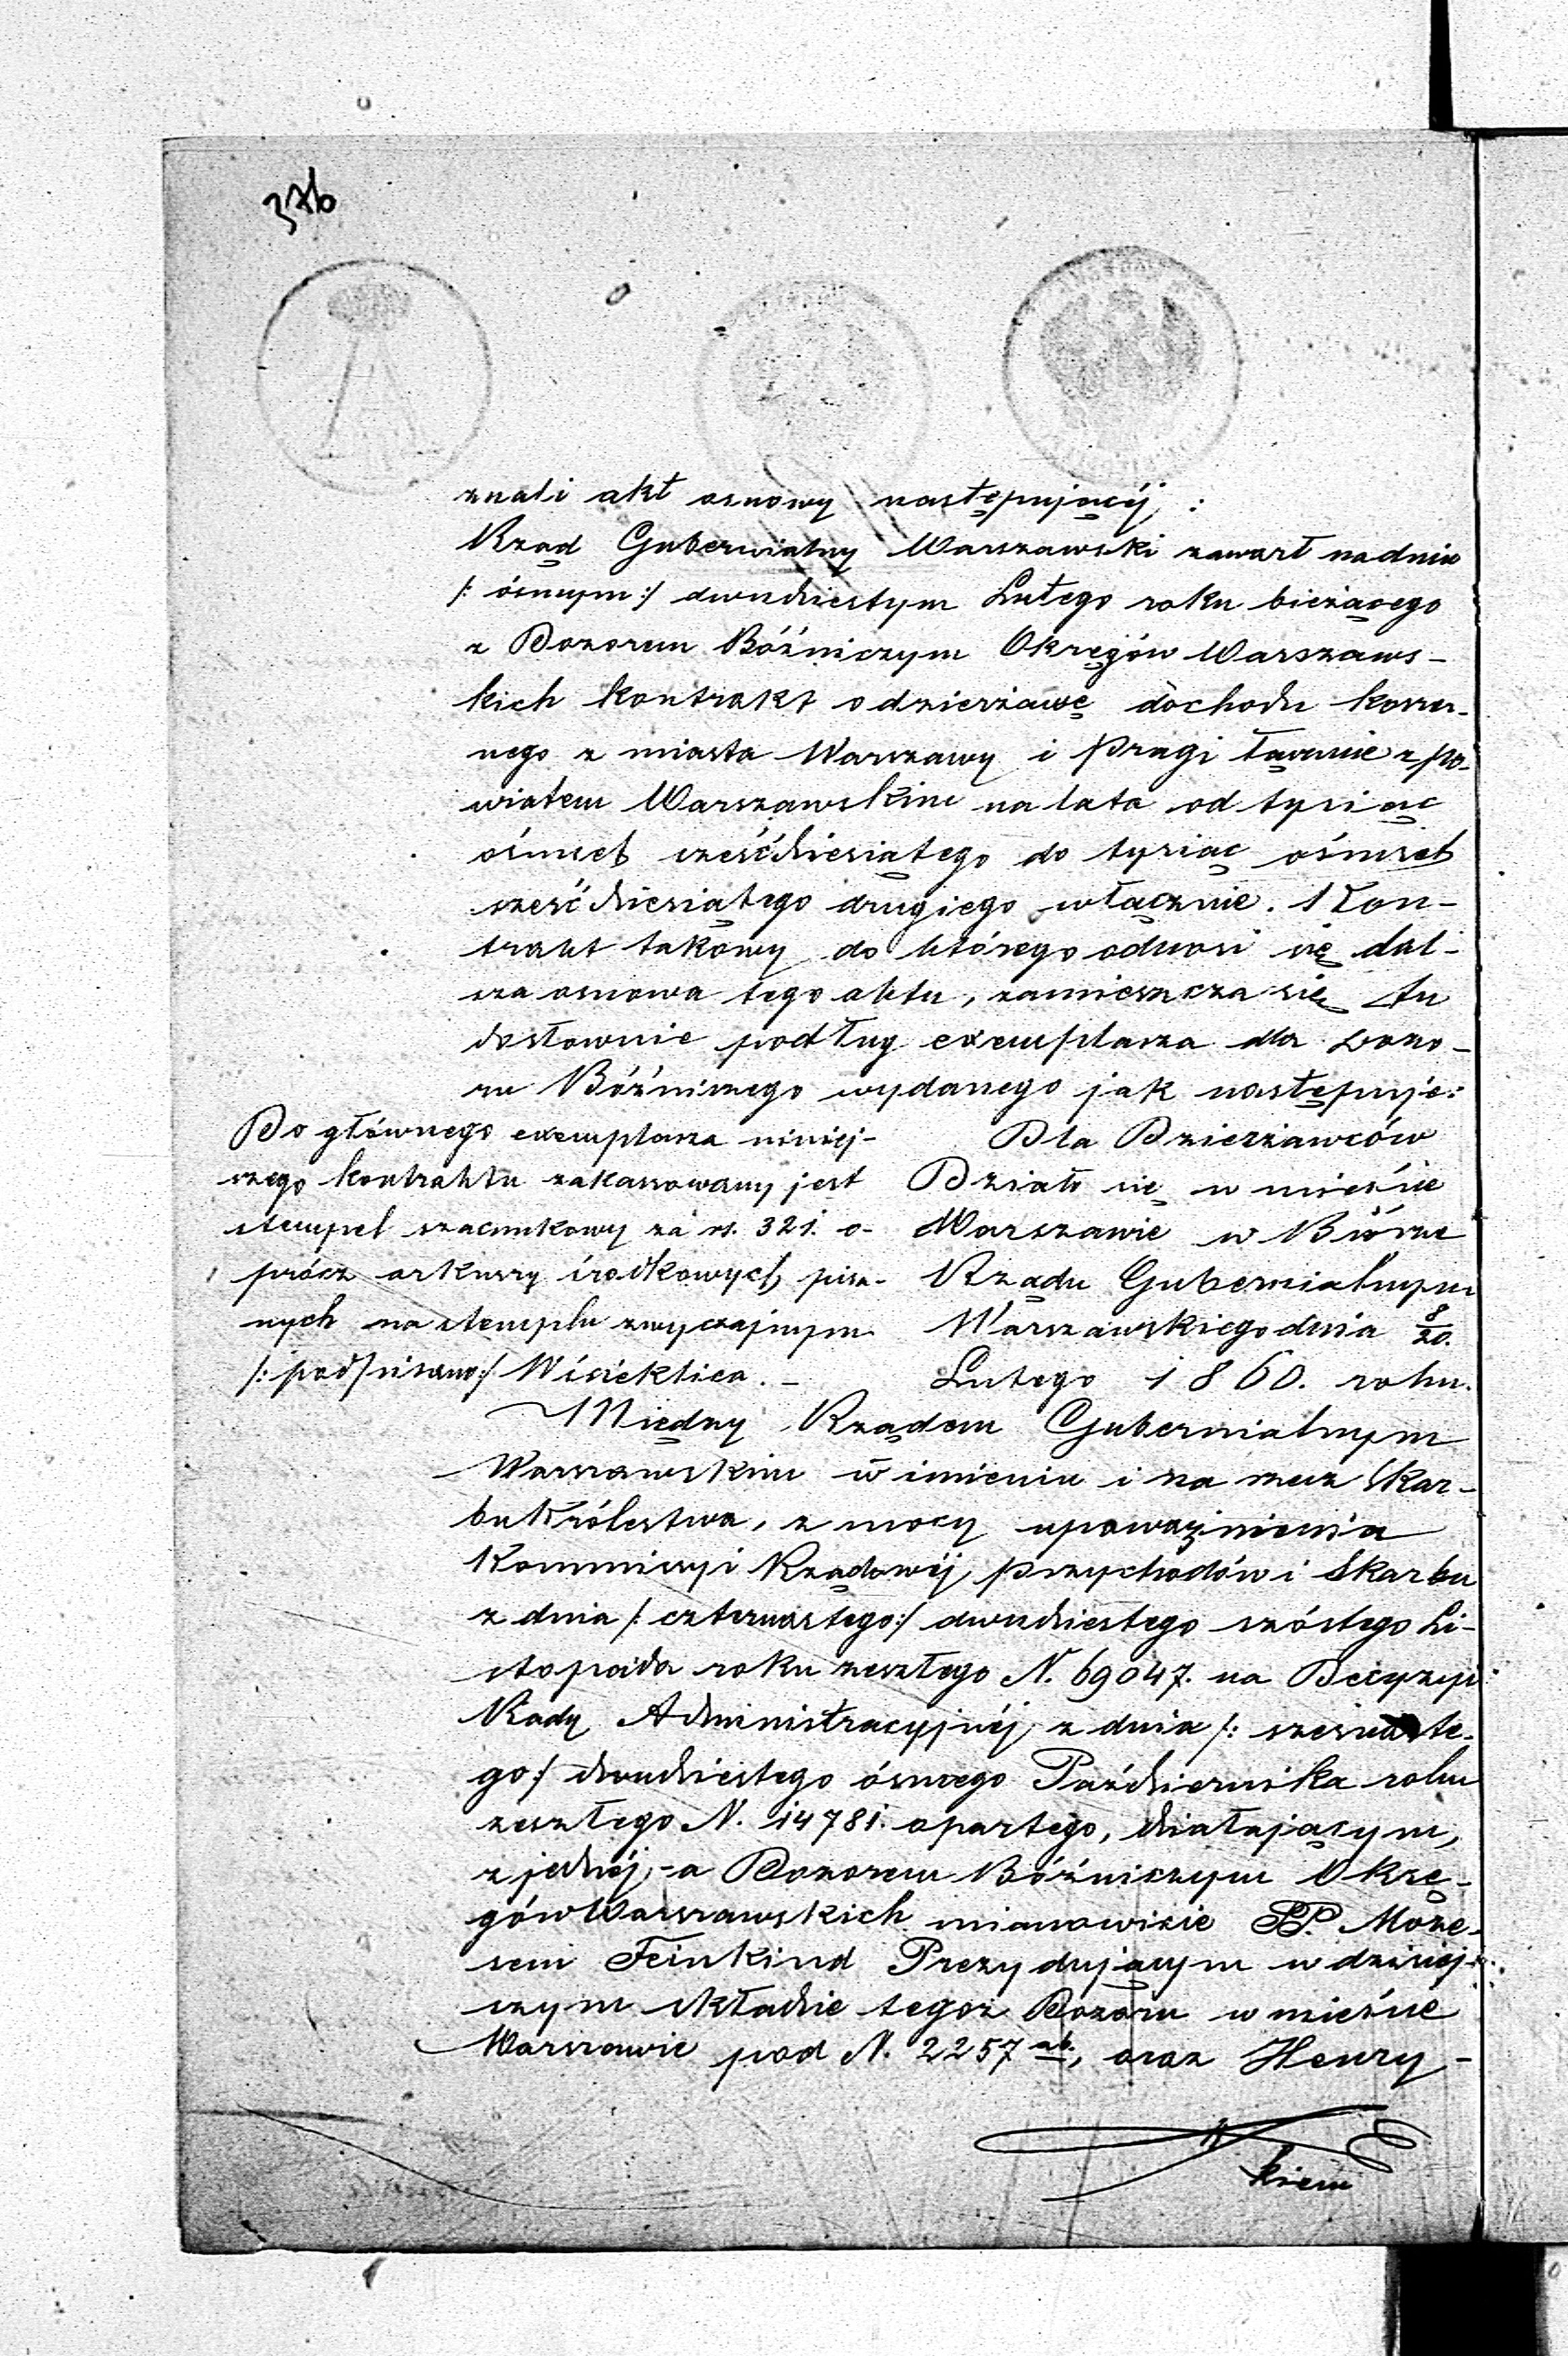 376
znali akt osnowy następującéj :
Rząd Gubernialny Warszawski zawarł na dniu
/: ósmym :/ dwudziestym Lutego roku bieżącego
z Dozorem Bóźniczym Okręgów Warszaws-
kich kontrakt o dzierżawę dochodu koszer-
nego z miasta Warszawy i Pragi łącznie z po-
wiatem Warszawskim na lata od tysiąc
ośmset sześćdziesiątego do tysiąc ośmset
sześćdziesiątego drugiego włącznie. Kon-
trakt takowy do którego odnosi się dal-
sza osnowa tego aktu, zamieszcza się tu
dosłownie podług exemplarza dla Dozo-
ru Bóźniczego wydanego jak następuje:
Do głównego exemplarza niniej-
szego kontraktu zakassowany jest
stempel szacunkowy za rs. 321. o-
prócz arkuszy środkowych pisa-
nych na stemplu zwyczajnym
/: podpisano :/ Wiścieklica. -
Dla Dzierżawców
Działo się w mieście
Warszawie w Biórze
Rządu Gubernialnym
Warszawskiego dnia 8/20.
Lutego 1860. roku.
Między Rządem Gubernialnym
Warszawskim w imieniu i na rzecz Skar-
bu Królestwa, z mocy upoważnienia
Kommissyi Rządowéj Przychodów i Skarbu
z dnia /: czternastego :/ dwudziestego szóstego Li-
stopada roku zeszłego N. 69047. na Decyzyi
Rady Administracyjnéj z dnia /: szesnaste-
go :/ dwudziestego ósmego Października roku
zeszłego N. 14781. opartego, działającym,
z jednéj, - a Dozorem Bóźniczym Okrę-
gów Warszawskich mianowicie PP. Może-
szem Feinkind Prezydującym w dzisiej-
szym składzie tegoż Dozoru w mieście
Warszawie pod N. 2257 ab., oraz Henry-
kiem